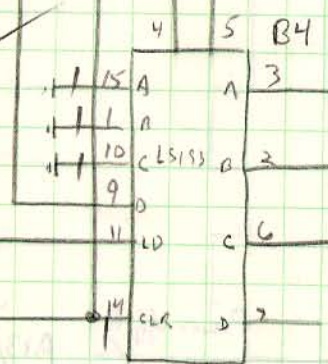 4 5 B4
15 A A 3
1 B
10 C LS193 B 2
9 D
11 LD C 6
14 CLR D 7